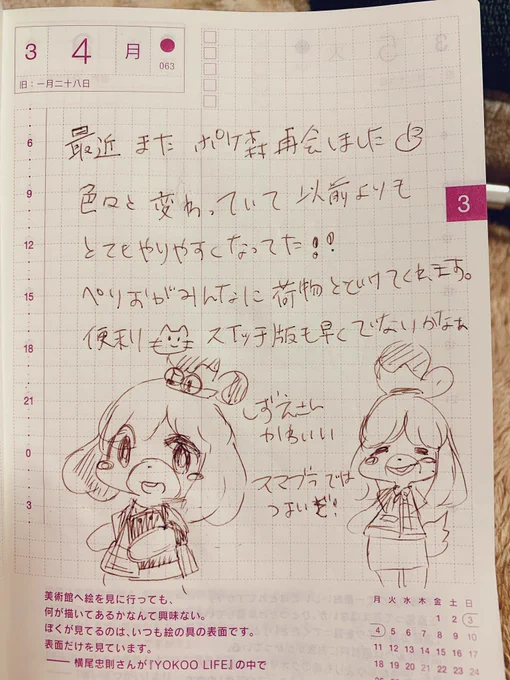 3 4 月
063
旧：一月二十八日
最近 また ポケ森 再会しました
色々と変わっていて 以前よりも
とてもやりやすくなってた!!
ぺりおがみんなに荷物とどけてくれます。
便利 スイッチ版も早くでないかなぁ
しずえさん
かわいい
スマブラでは
つよいぞ!
6
9
12
15
18
21
0
3
3
美術館へ絵を見に行っても、
何が描いてあるかなんて興味ない。
ぼくが見てるのは、いつも絵の具の表面です。
表面だけを見ています。
── 横尾忠則さんが『YOKOO LIFE』の中で
月 火 水 木 金 土 日
1 2 3
4 5 6 7 8 9 10
11 12 13 14 15 16 17
18 19 20 21 22 23 24